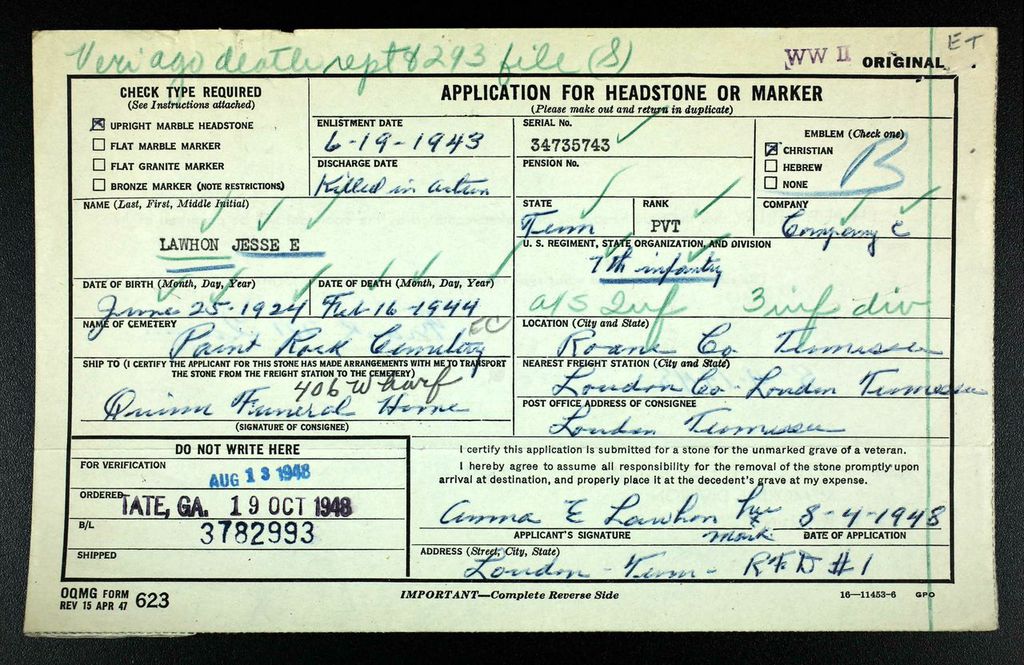 Veri ago death rept 8293 file (S)
WW II ORIGINAL
ET
CHECK TYPE REQUIRED
(See Instructions attached)
UPRIGHT MARBLE HEADSTONE
FLAT MARBLE MARKER
FLAT GRANITE MARKER
BRONZE MARKER (NOTE RESTRICTIONS)
APPLICATION FOR HEADSTONE OR MARKER
(Please make out and return in duplicate)
ENLISTMENT DATE
6-19-1943
DISCHARGE DATE
Killed in action
SERIAL No.
34735743
PENSION No.
EMBLEM (Check one)
CHRISTIAN
HEBREW
NONE
B
NAME (Last, First, Middle Initial)
LAWHON JESSE E
STATE
Tenn
RANK
PVT
COMPANY
Company C
U. S. REGIMENT, STATE ORGANIZATION, AND DIVISION
7th infantry
a/s Inf 3 inf div
DATE OF BIRTH (Month, Day, Year)
June 25-1924
DATE OF DEATH (Month, Day, Year)
Feb-16-1944
NAME OF CEMETERY
Paint Rock Cemetery
EC
LOCATION (City and State)
Roane Co Tennessee
SHIP TO (I CERTIFY THE APPLICANT FOR THIS STONE HAS MADE ARRANGEMENTS WITH ME TO TRANSPORT
THE STONE FROM THE FREIGHT STATION TO THE CEMETERY)
406 Wharf
Quinn Funeral Home
(SIGNATURE OF CONSIGNEE)
NEAREST FREIGHT STATION (City and State)
Loudon Co - Loudon Tennessee
POST OFFICE ADDRESS OF CONSIGNEE
Loudon Tennessee
DO NOT WRITE HERE
FOR VERIFICATION
AUG 13 1948
ORDERED
TATE, GA. 19 OCT 1948
B/L
3782993
SHIPPED
I certify this application is submitted for a stone for the unmarked grave of a veteran.
I hereby agree to assume all responsibility for the removal of the stone promptly upon
arrival at destination, and properly place it at the decedent's grave at my expense.
Anna E Lawhon her mark 8-4-1948
APPLICANT'S SIGNATURE
DATE OF APPLICATION
ADDRESS (Street, City, State)
Loudon - Tenn - RFD #1
OQMG FORM
REV 15 APR 47 623
IMPORTANT—Complete Reverse Side
16—11453-6 GPO